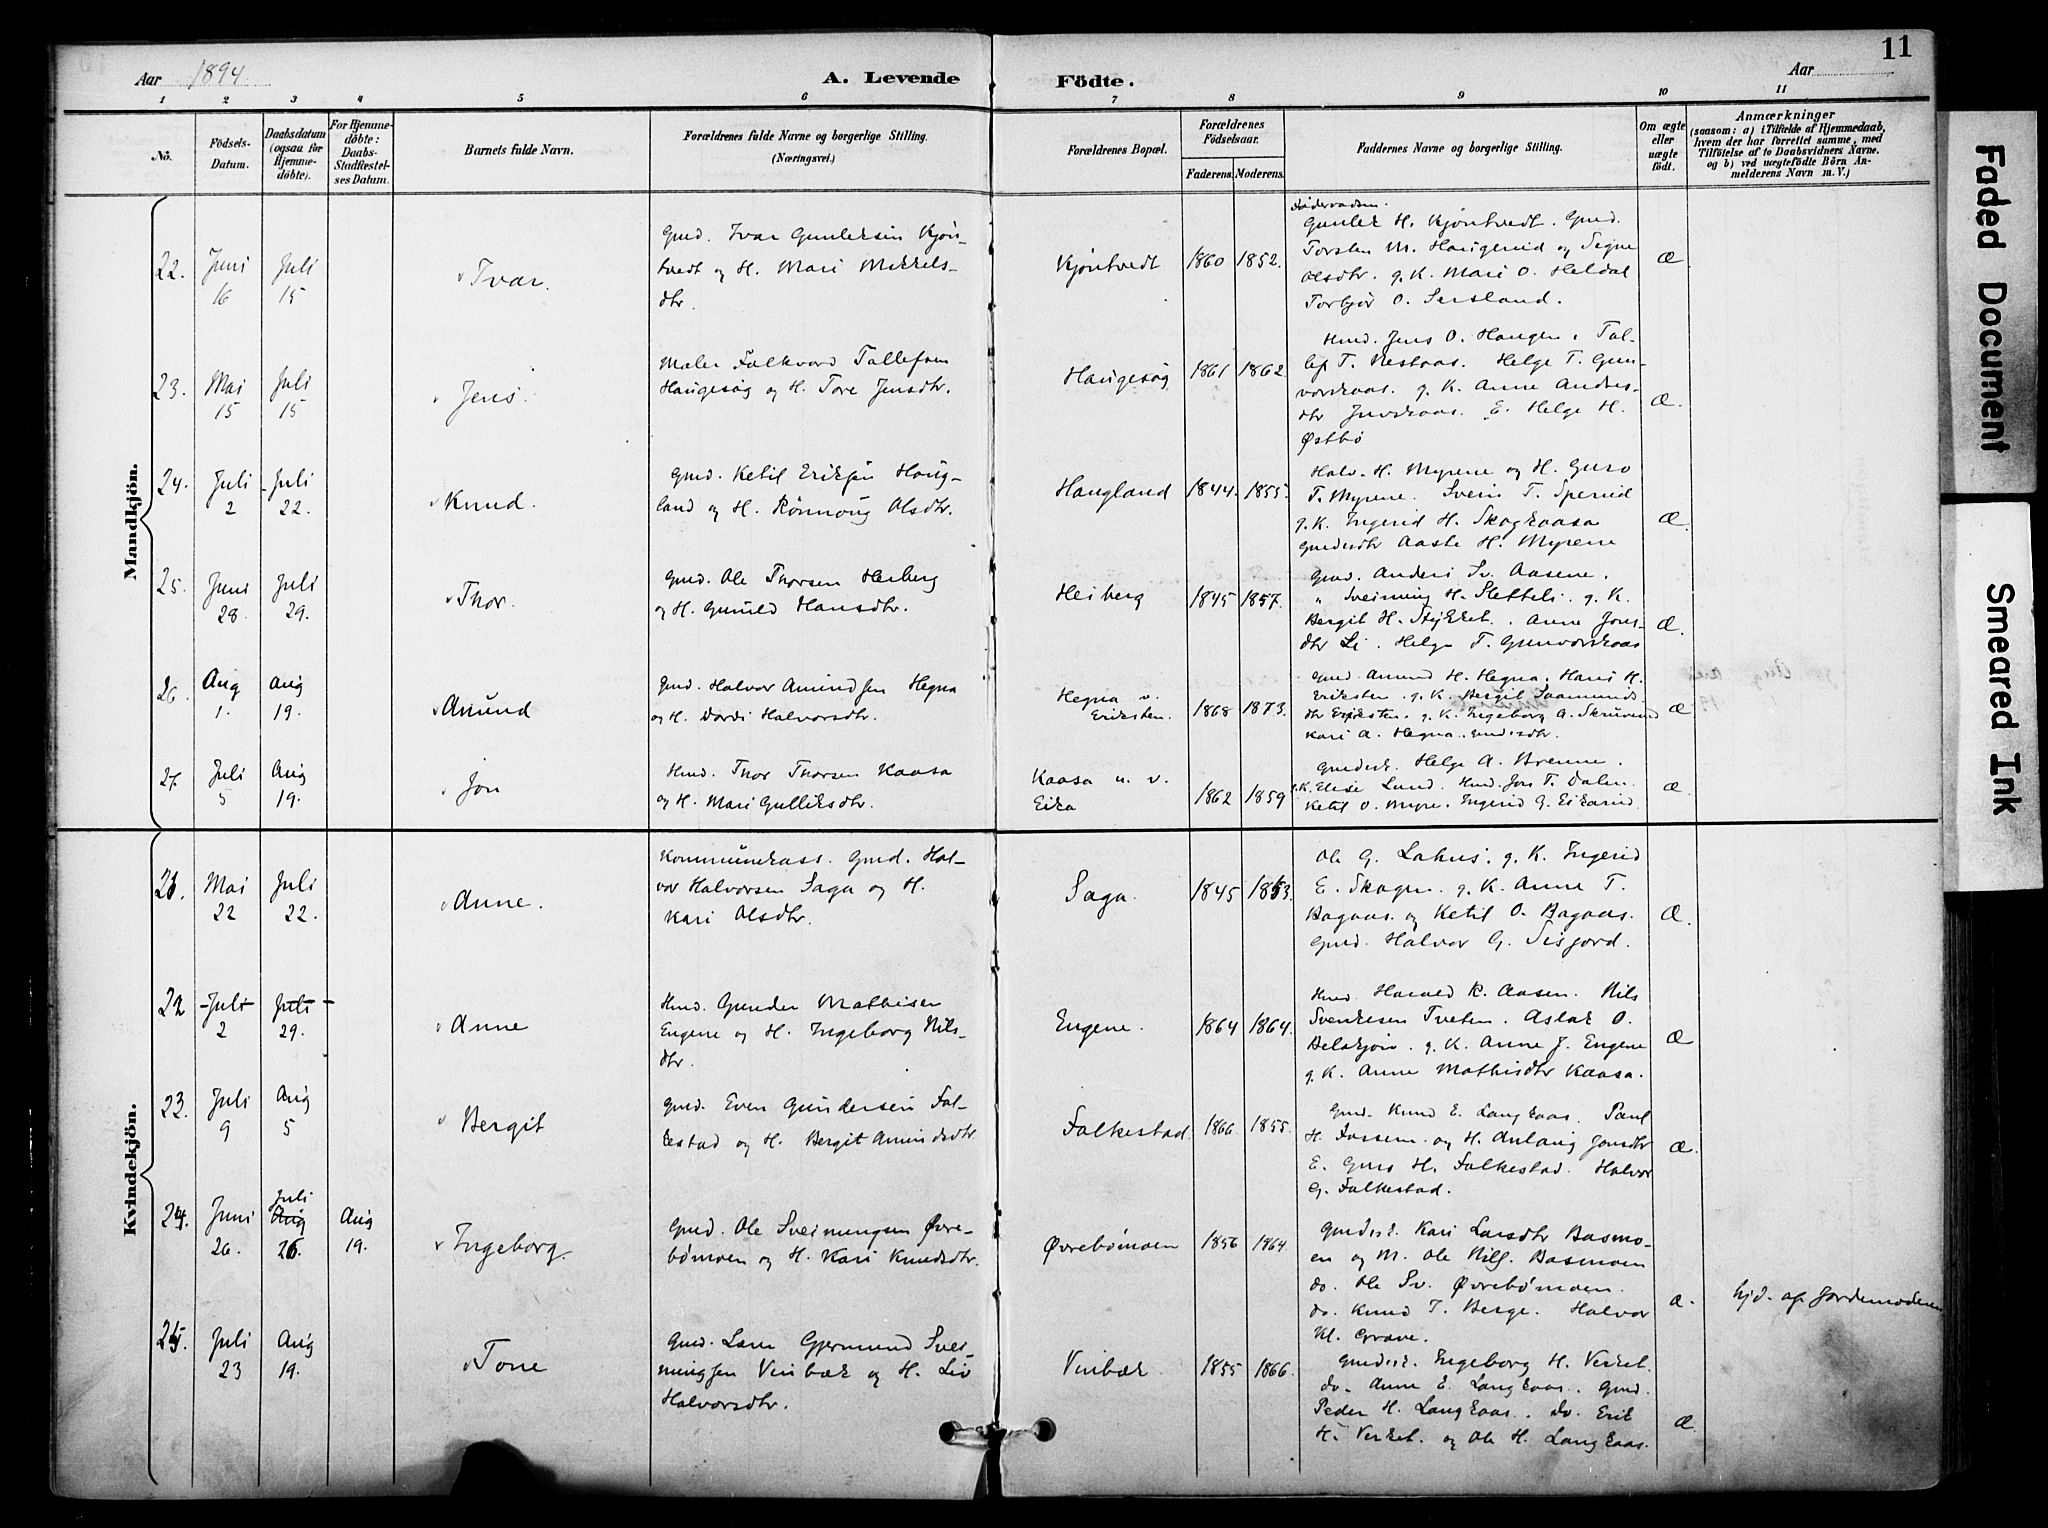 11
Aar 1894.
A. Levende Födte.
Aar
1 2 3 4 5 6 7 8 9 10 11
No.
Födsels-Datum.
Daabsdatum (ogsaa for Hjemme-döbte).
For Hjemme-döbte: Daabs-Stadfæstel-ses Datum.
Barnets fulde Navn.
Forældrenes fulde Navne og borgerlige Stilling.
(Næringsvei.)
Forældrenes Bopæl.
Forældrenes Födselsaar.
Faderens. Moderens.
Faddernes Navne og borgerlige Stilling.
Om ægte eller uægte födt.
Anmærkninger
(saasom: a) i Tilfælde af Hjemmedaab,
hvem der har forrettet samme, med
Tilföielse af to Daabsvidners Navne.
og b) ved uægtefödte Börn An-
melderens Navn m. V.)
Mandkjön.
22. Juni 16 Juli 15 Ivar.
Gmd. Ivar Gunlersen Kjön-
tvedt og H. Mari Mikkels-
dtr.
Kjöntvedt 1860 1852.
Gunler H. Kjöntvedt. Gmd.
Torsten M. Haugerud og Signe
Olsdtr. g. K. Mari O. Heldal
Torbjör O. Sersland.
Æ
23. Mai 15 Juli 15 Jens.
Maler Falkvard Tallefsen
Haugesag og H. Tore Jensdtr.
Haugesag 1861 1862
Hmd. Jens O. Haugen. Tal-
lef T. Nestaas. Helge T. Gun-
vorskaas. g. K. Anne Anders-
dtr Juvskaas. E. Helge H.
Østbö
Æ.
24. Juli 2 Juli 22. Knud.
Gmd. Ketil Eriksen Haug-
land og H. Rönnoug Olsdtr.
Haugland 1844. 1855.
Halv. H. Myrene og H. Guro
T. Myrene. Svein T. Sperud
g. K. Ingerid H. Skogkaasa
Gmdsdtr Aaste H. Myrene
Æ.
25. Juni 28. Juli 29. Thor.
Gmd. Ole Thorsen Heiberg
og H. Gunild Hansdtr.
Heiberg 1845 1857.
Gmd. Anders Sv. Aasene.
" Sveinung H. Sletteli. g. K.
Bergit H. Stykket. Anne Jons-
dtr Li. Helge T. Gunvorskaas
Æ.
26. Aug 1. Aug 19. Amund
Gmd. Halvor Amundsen Hegna
og H. Dordi Halvorsdtr.
Hegna v. Eriksten. 1868 1873.
Gmd. Amund H. Hegna. Hans H.
Eriksten. g. K. Bergit Saamunds-
dtr Eriksten. g. K. Ingeborg A. Skruverud
Kari A. Hegna. Gmdsdtr.
Æ
27. Juli 5 Aug 19. Jon
Hmd. Thor Thorsen Kaasa
og H. Mari Gulliksdtr.
Kaasa u. v. Eika 1862 1859
Gmdssk. Helge A. Brenne.
g. K. Elise Lund. Hmd. Jon T. Dalen.
Ketil O. Myre. Ingerid G. Eikarud
Æ.
Kvindekjön.
21. Mai 22 Juli 22. Anne.
Kommunekass. Gmd. Hal-
vor Halvorsen Saga og H.
Kari Olsdtr.
Saga. 1845 1853.
Ole G. Lahus. g. K. Ingerid
E. Skogen. g. K. Anne T.
Bagaas. og Ketil O. Bagaas.
Gmd. Halvor G. Sisjord.
Æ.
22 Juli 2 Juli 29. Anne
Hmd. Gunder Mathisen
Eugene og H. Ingeborg Nils-
dtr.
Eugene. 1864 1864.
Hmd. Harald K. Aasen. Nils
Svenksen Tveten. Aslak O.
g. K. Anne J. Eugene
g. K. Anne Mathisdtr Kaasa.
Æ
23. Juli 9 Aug 5 Bergit
Gmd. Even Gundersen Fal-
kestad og H. Bergit Amundsdtr
Falkestad 1866. 1855.
Gmd. Knud E. Langkaas. Paul
H. Fossem. og H. Anlaug Jonsdtr
E. Guro H. Falkestad. Halvor
G. Falkestad.
Æ.
24. Juni 26. Juli Aug 26. Aug 19. Ingeborg.
Gmd. Ole Sveinungsen Øvre-
bömoen og H. Kari Knudsdtr.
Øvrebömoen 1856 1864
Gmdssk. Kari Larsdtr Basmo-
en og M. Ole Nils. Basmoen
do. Ole Sv. Øvrebömoen.
do. Knud T. Berge. Halvor
Kl. Grave.
Æ.
hjd. af Jordemoderen
25. Juli 23 Aug 19. Tone
Gmd. Lars Gjermund Svei-
nungsen Vinbæk og H. Liv
Halvorsdtr.
Vinbæk. 1855 1866.
Gmdssk. Ingeborg H. Verket.
do. Anne E. Langkaas. Gmd.
Peder H. Langkaas. do. Erik
H. Verket. og Ole H. Langkaas.
Æ.
Faded Document
Smeared Ink